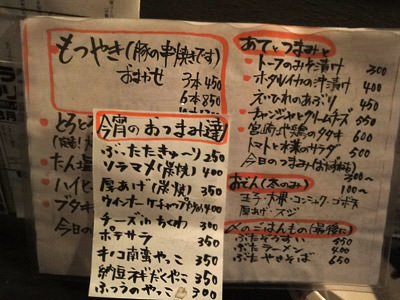 もつやき(豚の串焼きです)
おまかせ 3本450
6本850
とろと
たん塩
ハイと
ブタキ
今日の
今宵のおつまみ達
ぶったたきゅ〜り 250
ソラマメ(炭焼) 400
厚あげ(炭焼) 350
ウィンナーケチャップ炒め 400
チーズinちくわ 300
ポテサラ 350
キノコ南蛮やっこ 350
納豆ネギだくやっこ 350
ふつうのやっこ 300
あてとつまみと
・トーフのみそ漬け 300
・ホタルイカの沖漬け 400
・えいひれのあぶり 450
・チャンジャとクリームチーズ 550
・宮崎地鶏のタタキ 600
・トマトと水菜のサラダ 500
・今日のつまみ 300〜
おでん(冬のみ) 100〜
玉子・大根・コンニャク・ゴボテン
厚あげ・スジ
〆のごはんもの(最後に)
ぶたぞうすい 550
ぶたラーメン 600
ぶたやきそば 650